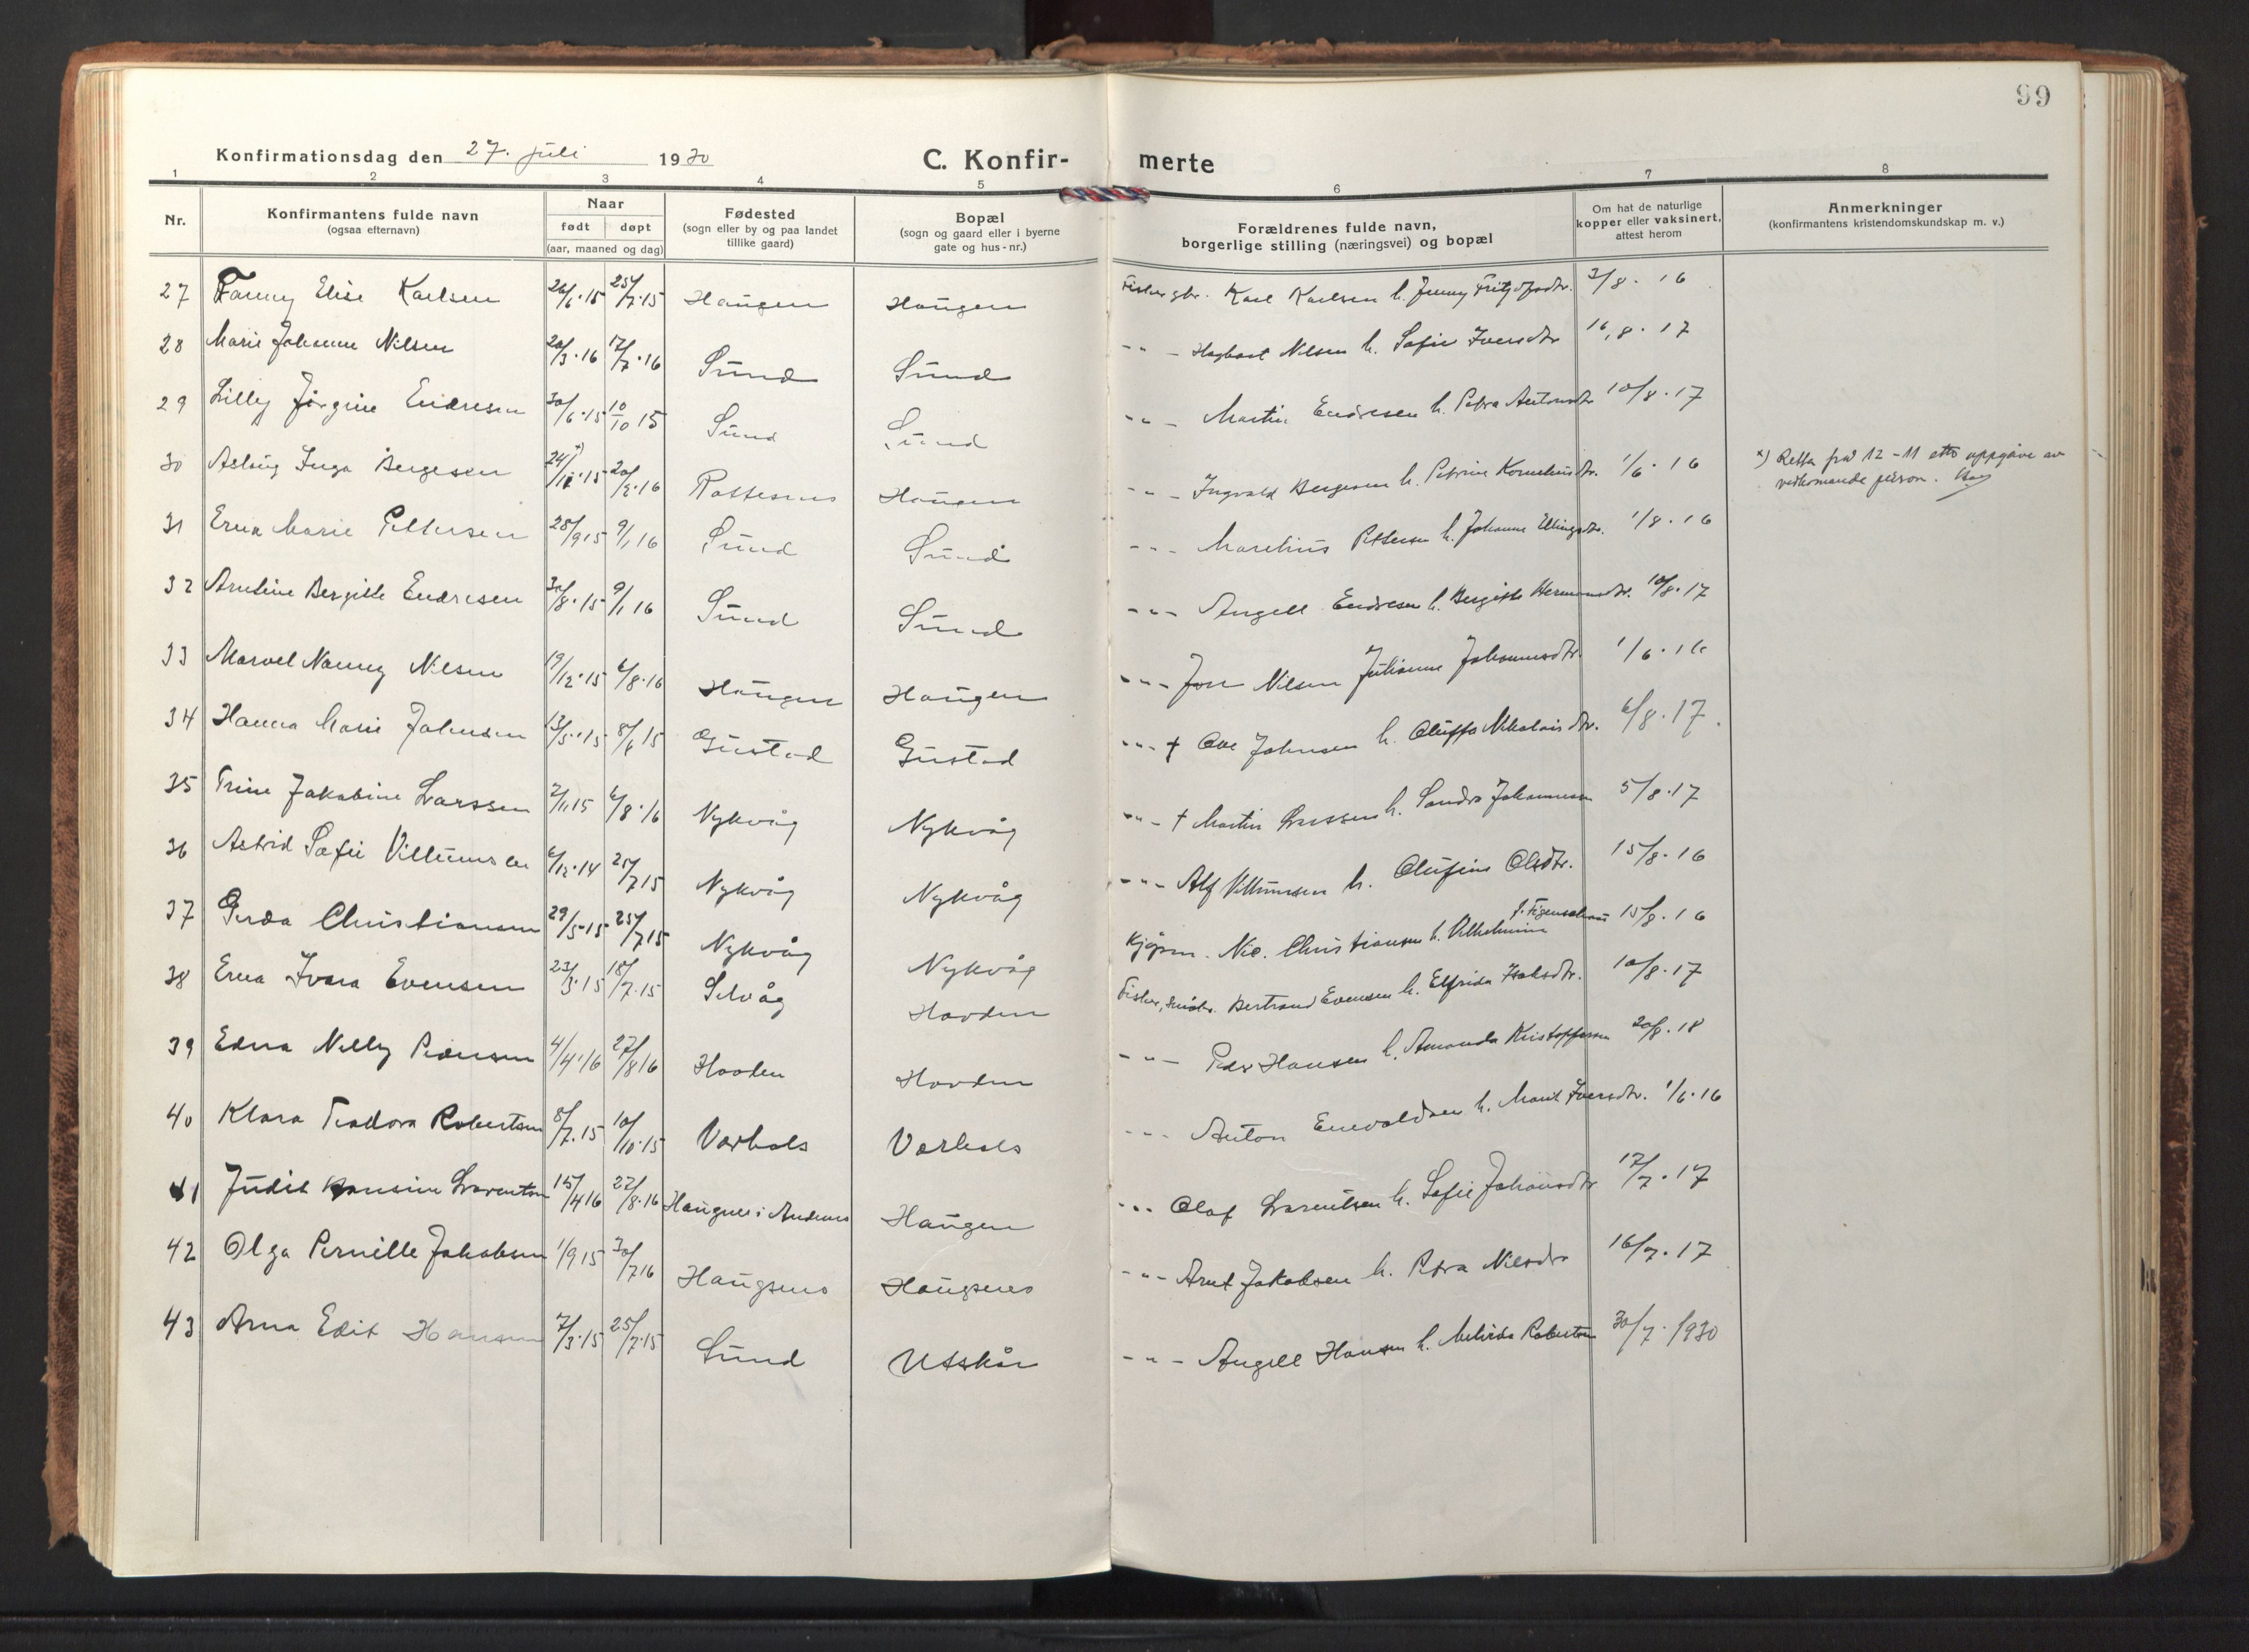 99
Konfirmationsdag den 27. juli 1930
C. Konfir-
merte
1 2 3 4 5 6 7 8
Nr.
Konfirmantens fulde navn
(ogsaa efternavn)
Naar
født døpt
(aar, maaned og dag)
Fødested
(sogn eller by og paa landet
tillike gaard)
Bopæl
(sogn og gaard eller i byerne
gate og hus-nr.)
Forældrenes fulde navn,
borgerlige stilling (næringsvei) og bopæl
Om hat de naturlige
kopper eller vaksinert,
attest herom
Anmerkninger
(konfirmantens kristendomskundskap m. v.)
27 Fanny Elise Karlsen 26/6.15 25/7.15 Haugen Haugen Fisker gbr. Karl Karlsen h. Jenny Fritjofsdtr. 3/8.16
28 Marie Johanne Nilsen 20/3.16 17/7.16 Sund Sund -"- Hagbart Nilsen h. Sofie Iversdtr 16/8.17
29 Lilly Jørgine Endresen 30/6.15 10/10 15 Sund Sund -"- Martin Endresen h. Petra Antonsdtr 10/8.17
30 Aslaug Inga Bergesen 24/11.15 x) 20/2.16 Haugen -"- Ingvald Bergesen h. Petrine Korneliusdtr. 1/6.16 x) Retta frå 12-11 etter uppgåve av
vedkomande person.
31 Erna Marie Pettersen 28/9 15 9/1 16 Sund Sund -"- Marelius Pettersen h. Johanne Ellingsdtr. 1/8.16
32 Arntine Bergitte Endresen 30/8.15 9/1 16 Sund Sund -"- Angell Endresen h. Bergitte Hermansdtr. 10/8.17
33 Marvel Nanny Nilsen 19/12.15 6/8.16 Haugen Haugen -"- Jon Nilsen h. Julianne Johannesdtr. 1/6.16
34 Hanna Marie Johnsen 13/5.15 8/8 15 Gustad Gustad -"- † Ole Johnsen h. Oluffa Nikolaisdtr. 6/8.17.
35 Trine Jakobine Larssen 2/11.15 6/8.16 Nykvåg Nykvåg -"- † Martin Larssen h. Sandra Johannessen 5/8.17
36 Astrid Sofie Villumsen 6/12.14 25/7 15 Nykvåg Nykvåg -"- Alf Villumsen h. Olufine Olsdtr. 15/8.16
37 Gerda Christiansen 29/5.15 25/7 15 Nykvåg Nykvåg Kjøpm. Nic. Christiansen h. Vilhelmine f. Figenschau 15/8.16
38 Erna Ivara Evensen 23/3.15 18/7.15 Selvåg Hovden Fisker, småbr. Bertrand Evensen h. Elfrida Isaksdtr. 10/8.17
39 Edna Nelly Pedersen 4/4.16 27/8 16 Hovden Hovden -"- Peder Hansen h. Amanda Kristoffersen 20/8.18
40 Klara Teodora Robertsen 8/7.15 10/10.15 Vorhals Vorhals -"- Anton Enevoldsen h. Marit Iversdtr. 1/6.16
41 Judit Hansine Lorentsen 15/4 16 27/8.16 Haugnes i Andenes Haugen -"- Olaf Lorentsen h. Sofie Johansdtr 17/7.17
42 Olga Pernille Jakobsen 1/9 15 30/7 16 Haugsnes Haugsnes -"- Arnt Jakobsen h. Petra Nilsdtr 16/7.17
43 Arna Edit Hansen 7/3.15 25/7.15 Sund Utskår -"- Angell Hansen h. Robertsen 30/7.1930